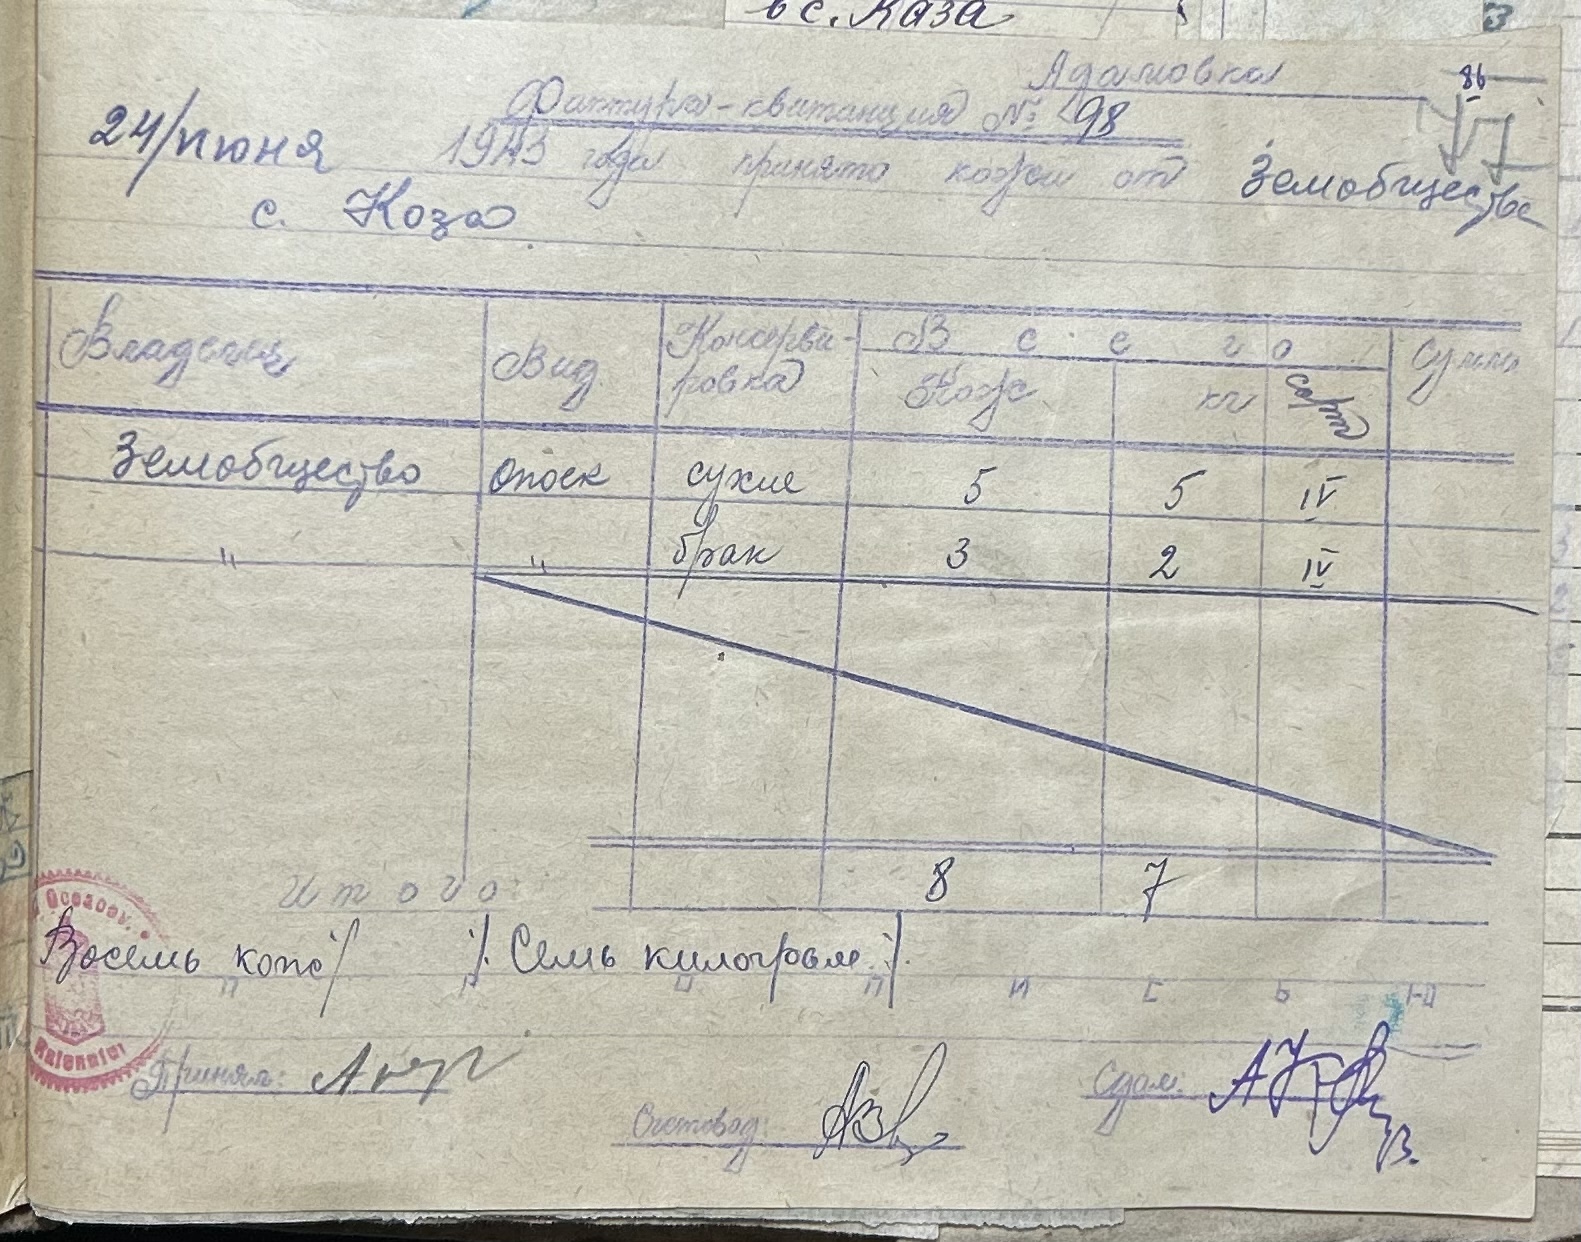 в с. Каза
Адамовка
86
Фактура-квитанция № 98
24/июня 1943 года принято кожей от Земобществе
с. Коза
Владелец Вид Консерви- В с е г о Сумма
ровка Кож кг сорт
Земобщество опоек сухие 5 5 IV
" " брак 3 2 IV
Итого 8 7
Восемь кож /. Семь килограм /.
Принял:
Счетовод:
Сдал: